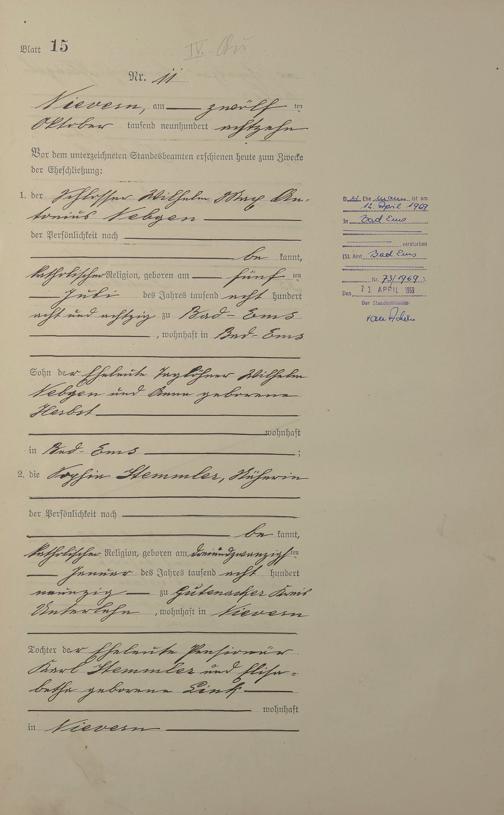 Blatt 15
Nr. 11
Nievern, am zwölf ten
Oktober tausend neunhundert achtzehn
Vor dem unterzeichneten Standesbeamten erschienen heute zum Zwecke
der Eheschließung:
1. der Schlosser Wilhelm Max An-
tonius Nebgen
der Persönlichkeit nach
be kannt,
katholischer Religion, geboren am fünf ten
Juli des Jahres tausend acht hundert
acht und achtzig zu Bad-Ems
, wohnhaft in Bad-Ems
Sohn der Eheleute Taglöhner Wilhelm
Nebgen und Anna geborene
Herbst
wohnhaft
in Bad-Ems ;
2. die Sophie Stemmler, Näherin
der Persönlichkeit nach
be kannt,
katholischer Religion, geboren am dreiundzwanzigsten
Januar des Jahres tausend acht hundert
neunzig zu Gutenacker Kreis
Unterlahn , wohnhaft in Nievern
Tochter der Eheleute Pensionär
Karl Stemmler und Elisa-
betha geborene Link
wohnhaft
in Nievern
Ehemann ist am
14. April 1969
in Bad Ems
verstorben
(St. Amt Bad Ems
Nr. 73/1969)
Den 21. APRIL 1969
Der Standesbeamte